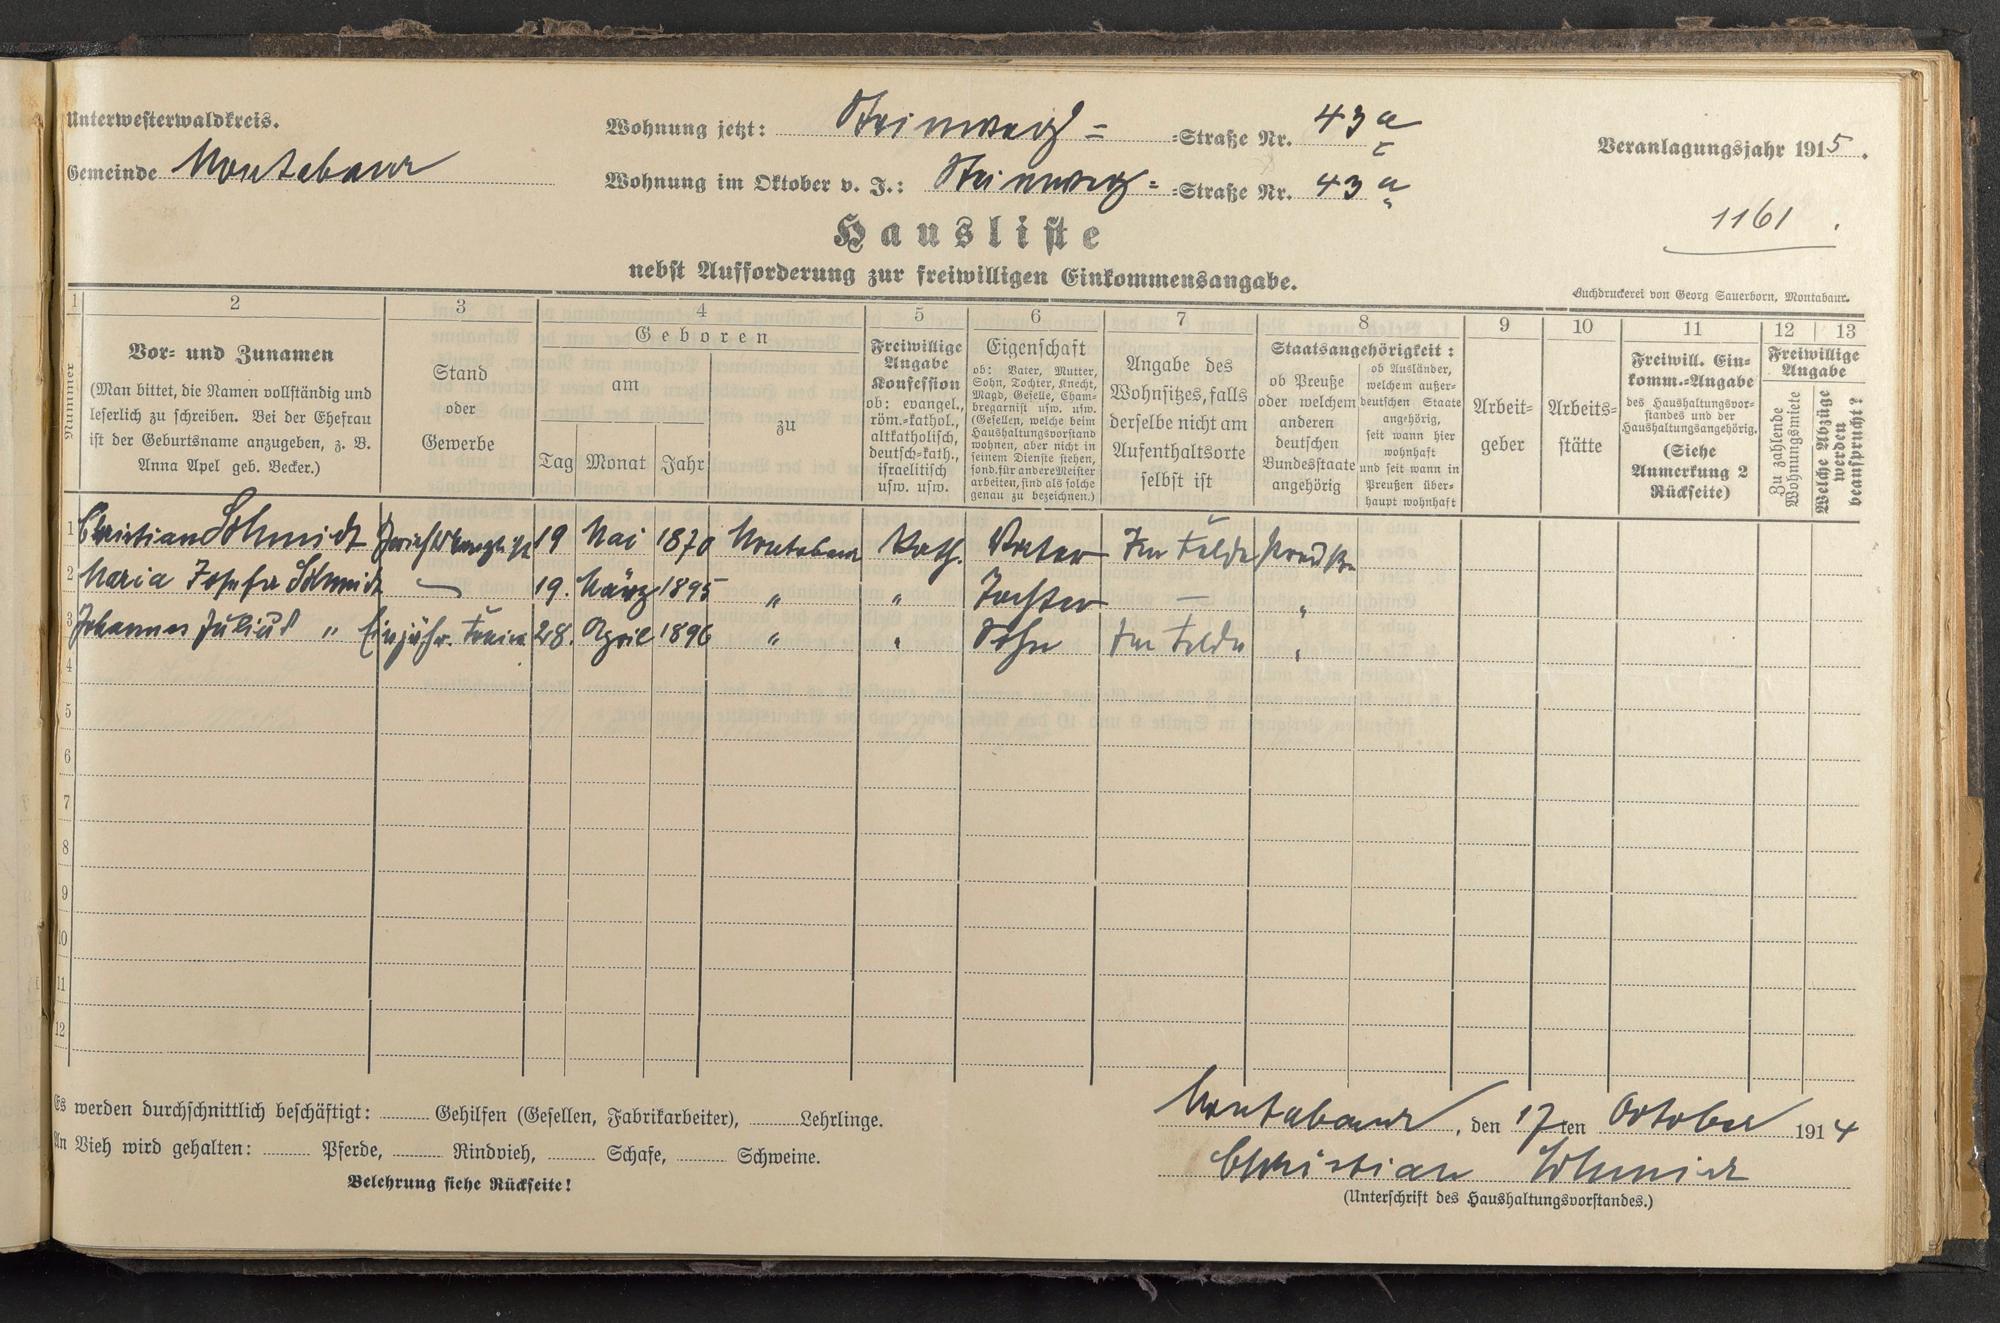 Unterwesterwaldkreis.
Gemeinde Montabaur
Wohnung jetzt: Steinweg= =Straße Nr. 43 a
Wohnung im Oktober v. J.: Steinweg= =Straße Nr. 43 a
Veranlagungsjahr 1915.
1161.
Hausliste
nebst Aufforderung zur freiwilligen Einkommensangabe.
Buchdruckerei von Georg Sauerborn, Montabaur.
1 2 3 4 5 6 7 8 9 10 11 12 13
Nummer
Vor= und Zunamen
(Man bittet, die Namen vollständig und
leserlich zu schreiben. Bei der Ehefrau
ist der Geburtsname anzugeben, z. B.
Anna Apel geb. Becker.)
Stand
oder
Gewerbe
Geboren
am
Tag Monat Jahr
zu
Freiwillige
Angabe
Konfession
ob: evangel.,
röm.=kathol.,
altkatholisch,
deutsch=kath.,
israelitisch
usw. usw.
Eigenschaft
ob: Vater, Mutter,
Sohn, Tochter, Knecht,
Magd, Geselle, Cham=
bregarnist usw. usw.
(Gesellen, welche beim
Haushaltungsvorstand
wohnen, aber nicht in
seinem Dienste stehen,
sond. für andere Meister
arbeiten, sind als solche
genau zu bezeichnen.)
Angabe des
Wohnsitzes, falls
derselbe nicht am
Aufenthaltsorte
selbst ist
Staatsangehörigkeit:
ob Preuße
oder welchem
anderen
deutschen
Bundesstaate
angehörig
ob Ausländer,
welchem außer=
deutschen Staate
angehörig,
seit wann hier
wohnhaft
und seit wann in
Preußen über=
haupt wohnhaft
Arbeit=
geber
Arbeits=
stätte
Freiwill. Ein=
komm.=Angabe
des Haushaltungsvor=
standes und der
Haushaltungsangehörig.
(Siehe
Anmerkung 2
Rückseite)
Freiwillige
Angabe
Zu zahlende
Wohnungsmiete
Welche Abzüge
werden
beansprucht?
1 Christian Schmidt 19 Mai 1870 Montabaur Kath. Vater Im Felde Preuße
2 Maria Josefa Schmidt — 19. März 1895 " " Tochter — "
3 Johannes Julius " Einjähr. Freiw. 28. April 1896 " " Sohn Im Felde "
4
5
6
7
8
9
10
11
12
Es werden durchschnittlich beschäftigt: Gehilfen (Gesellen, Fabrikarbeiter), Lehrlinge.
An Vieh wird gehalten: Pferde, Rindvieh, Schafe, Schweine.
Belehrung siehe Rückseite!
Montabaur, den 17ten October 1914
Christian Schmidt
(Unterschrift des Haushaltungsvorstandes.)